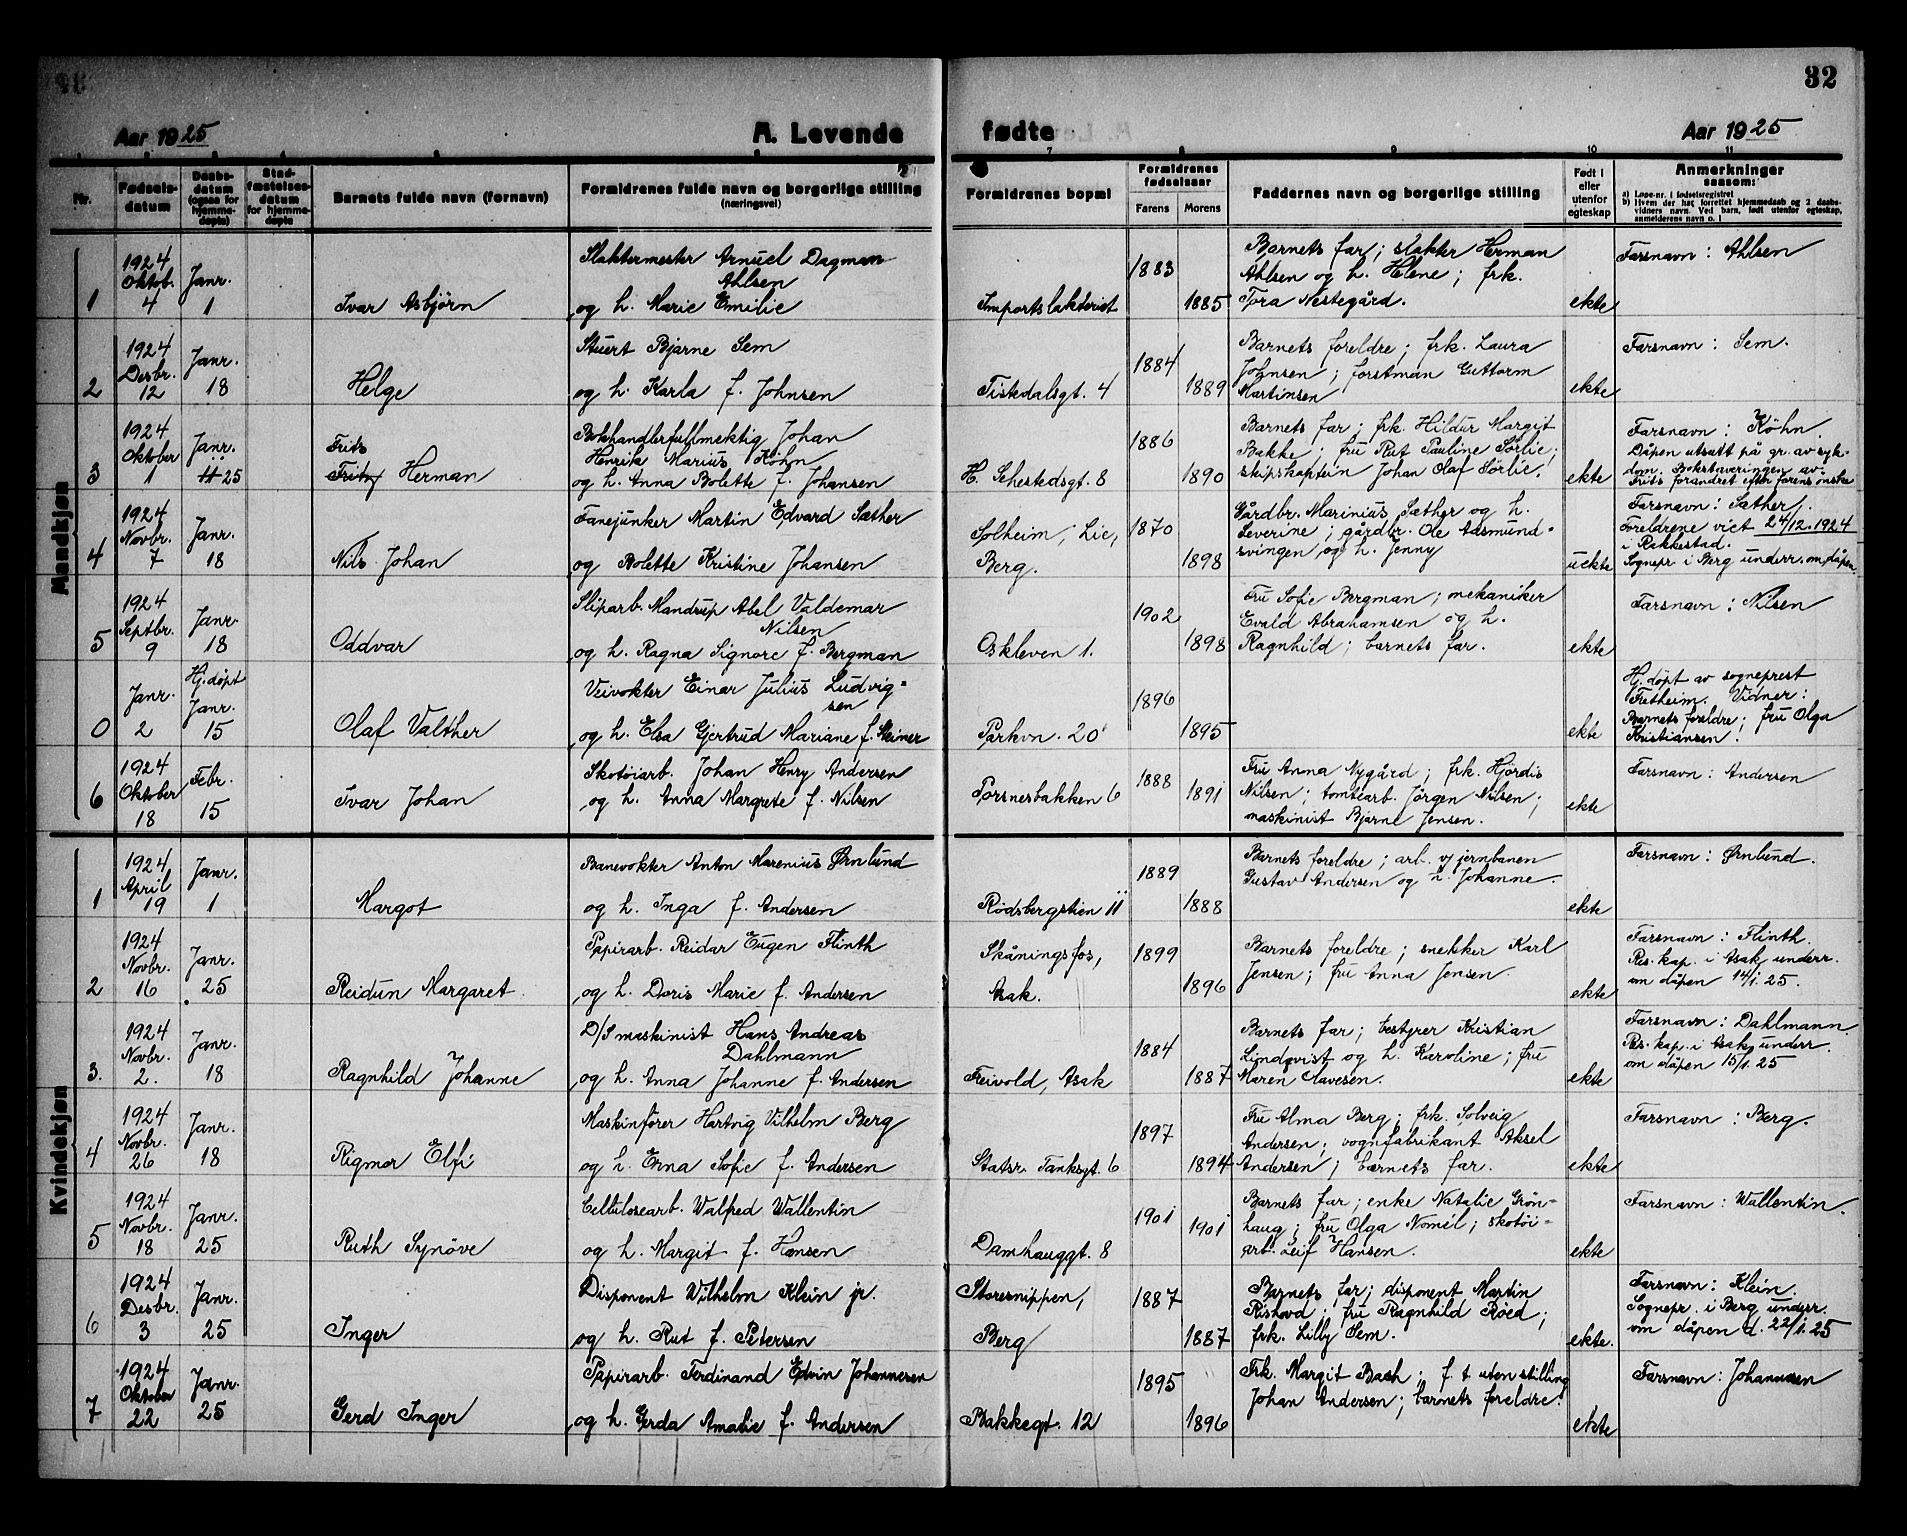 32
Aar 1925
A. Levende
fødte
Aar 1925
7 8 9 10 11
Nr.
Fødsels-
datum
Daabs-
datum
(ogsaa for
hjemme-
døpte)
Stad-
fæstelses-
datum
for hjemme-
døpte
Barnets fulde navn (fornavn)
Forældrenes fulde navn og borgerlige stilling
(næringsvei)
Forældrenes bopæl
Forældrenes
fødselsaar
Farens
Morens
Faddernes navn og borgerlige stilling
Født i
eller
utenfor
egteskap
Anmerkninger
saasom:
a) Løpe-nr. i fødselsregistret
b) Hvem der har forrettet hjemmedaab og 2 daabs-
vidners navn. Ved barn, født utenfor egteskap,
anmelderens navn o. l.
Mandkjøn
1
1924
Oktob.
4
Janr.
1
Ivar Asbjörn
Slaktermester Arnuel Dagman
Ahlsen
og h. Marie Emilie
Importslakteriet
1883
1885
Barnets far; slakter Herman
Ahlsen og h. Helene; frk.
Tora Nestegård.
ekte
Farsnavn: Ahlsen
2
1924
Desbr.
12
Janr.
18
Helge
Stuert Bjarne Sem
og h. Karla f. Johnsen
Tistedalsgt. 4
1884
1889
Barnets foreldre; frk. Laura
Johnsen; forstman Guttorm
Martinsen
ekte
Farsnavn: Sem.
3
1924
Oktober
1
Janr.
11 25
Frits
Fritz Herman
Bokhandlerfullmektig Johan
Henrik Marius Köhn
og h. Anna Bolette f. Johansen
H. Sehestedsgt. 8
1886
1890
Barnets far; frk. Hildur Margit
Bakke; fru Rut Pauline Sörlie;
skipskaptein Johan Olaf Sörlie.
ekte
Farsnavn: Köhn.
Dåpen utsatt på gr. av syk-
dom. Bokstaveringen av
Frits forandret efter farens önske
4
1924
Novbr.
7
Janr.
18
Nils Johan
Fanejunker Martin Edvard Sæther
og Bolette Kristine Johansen
Solheim, Lie,
Berg.
1870
1898
Gårdbr. Marinius Sæther og h.
Severine; gårdbr. Ole Aasmund-
svingen og h. Jenny
uekte
Farsnavn: Sæther.
Foreldrene viet 24/12. 1924
i Rakkestad.
Sognepr. i Berg underr. om dåpen.
5
1924
Septbr.
9
Janr.
18
Oddvar
Sliparb. Mandrup Abel Valdemar
Nilsen
og h. Ragna Signore f. Bergman
Oskleven 1.
1902
1898
Fru Sofie Bergman; mekaniker
Evald Abrahamsen og h.
Ragnhild; barnets far.
ekte
Farsnavn: Nilsen
0
Janr.
2
Hj. döpt
Janr.
15
Olaf Valther
Veivokter Einar Julius Ludvig-
sen
og h. Elsa Gjertrud Mariane f. Steiner
Parkvn. 20
1896
1895
ekte
Hj. döpt av sogneprest
Fretheim. Vidner:
Barnets foreldre; fru Olga
Kristiansen.
6
1924
Oktober
18
Febr.
15
Ivar Johan
Skotöiarb. Johan Henry Andersen
og h. Anna Margrete f. Nilsen
Porsnesbakken 6
1888
1891
Fru Anna Nygård; frk. Hjördis
Nilsen; tomtearb. Jörgen Nilsen;
maskinist Bjarne Jensen.
ekte
Farsnavn: Andersen
Kvindekjøn
1
1924
April
19
Janr.
1
Margot
Banevokter Anton Marenius Örnlund
og h. Inga f. Andersen
Rödsbergstien 11
1889
1888
Barnets foreldre; arb. v/ jernbanen
Gustav Andersen og h. Johanne.
ekte
Farsnavn: Örnlund.
2
1924
Novbr.
16
Janr.
25
Reidun Margaret
Papirarb. Reidar Eugen Flinth
og h. Doris Marie f. Andersen
Skåningsfos,
Asak.
1899
1896
Barnets foreldre; snekker Karl
Jensen; fru Anna Jensen.
ekte
Farsnavn: Flinth.
Res. kap. i Asak underr.
om dåpen 14/1. 25.
3.
1924
Novbr.
2.
Janr.
18
Ragnhild Johanne
D/S maskinist Hans Andreas
Dahlmann
og h. Anna Johanne f. Andersen
Freivold, Asak
1884
1887
Barnets far; bestyrer Kristian
Lindqvist og h. Karoline; fru
Maren Clavesen.
ekte
Farsnavn: Dahlmann.
Res. kap. i Asak underr.
om dåpen 15/1. 25
4
1924
Novbr.
26
Janr.
18
Rigmor Elfi
Maskinförer Hartvig Vilhelm Berg
og h. Erna Sofie f. Andersen
Statsr. Tanksgt. 6
1897
1894
Fru Alma Berg; frk. Solveig
Andersen; vognfabrikant Aksel
Andersen; barnets far.
ekte
Farsnavn: Berg.
5
1924
Novbr.
18
Janr.
25
Ruth Synöve
Cellulosearb. Walfred Wallentin
og h. Margit f. Hansen
Damhauggt. 8
1901
1901
Barnets far; enke Natalie Grön-
haug; fru Olga Nomel; skotöi-
arb. Leif Hansen.
ekte
Farsnavn: Wallentin.
6
1924
Desbr.
3
Janr.
25
Inger
Disponent Wilhelm Klein jr.
og h. Rut f. Petersen
Storesnippen,
Berg
1887
1887
Barnets far; disponent Martin
Ristvod; fru Ragnhild Röed;
frk. Lilly Sem.
ekte.
Farsnavn: Klein.
Sognepr. i Berg underr.
om dåpen d. 22/1. 25
7
1924
Oktober
22
Janr.
25
Gerd Inger
Papirarb. Ferdinand Edvin Johannesen
og h. Gerda Amalie f. Andersen
Bakkegt. 12
1895
1896
Frk. Margit Bash; f. t uten stilling
Johan Andersen; barnets foreldre.
ekte
Farsnavn: Johannesen